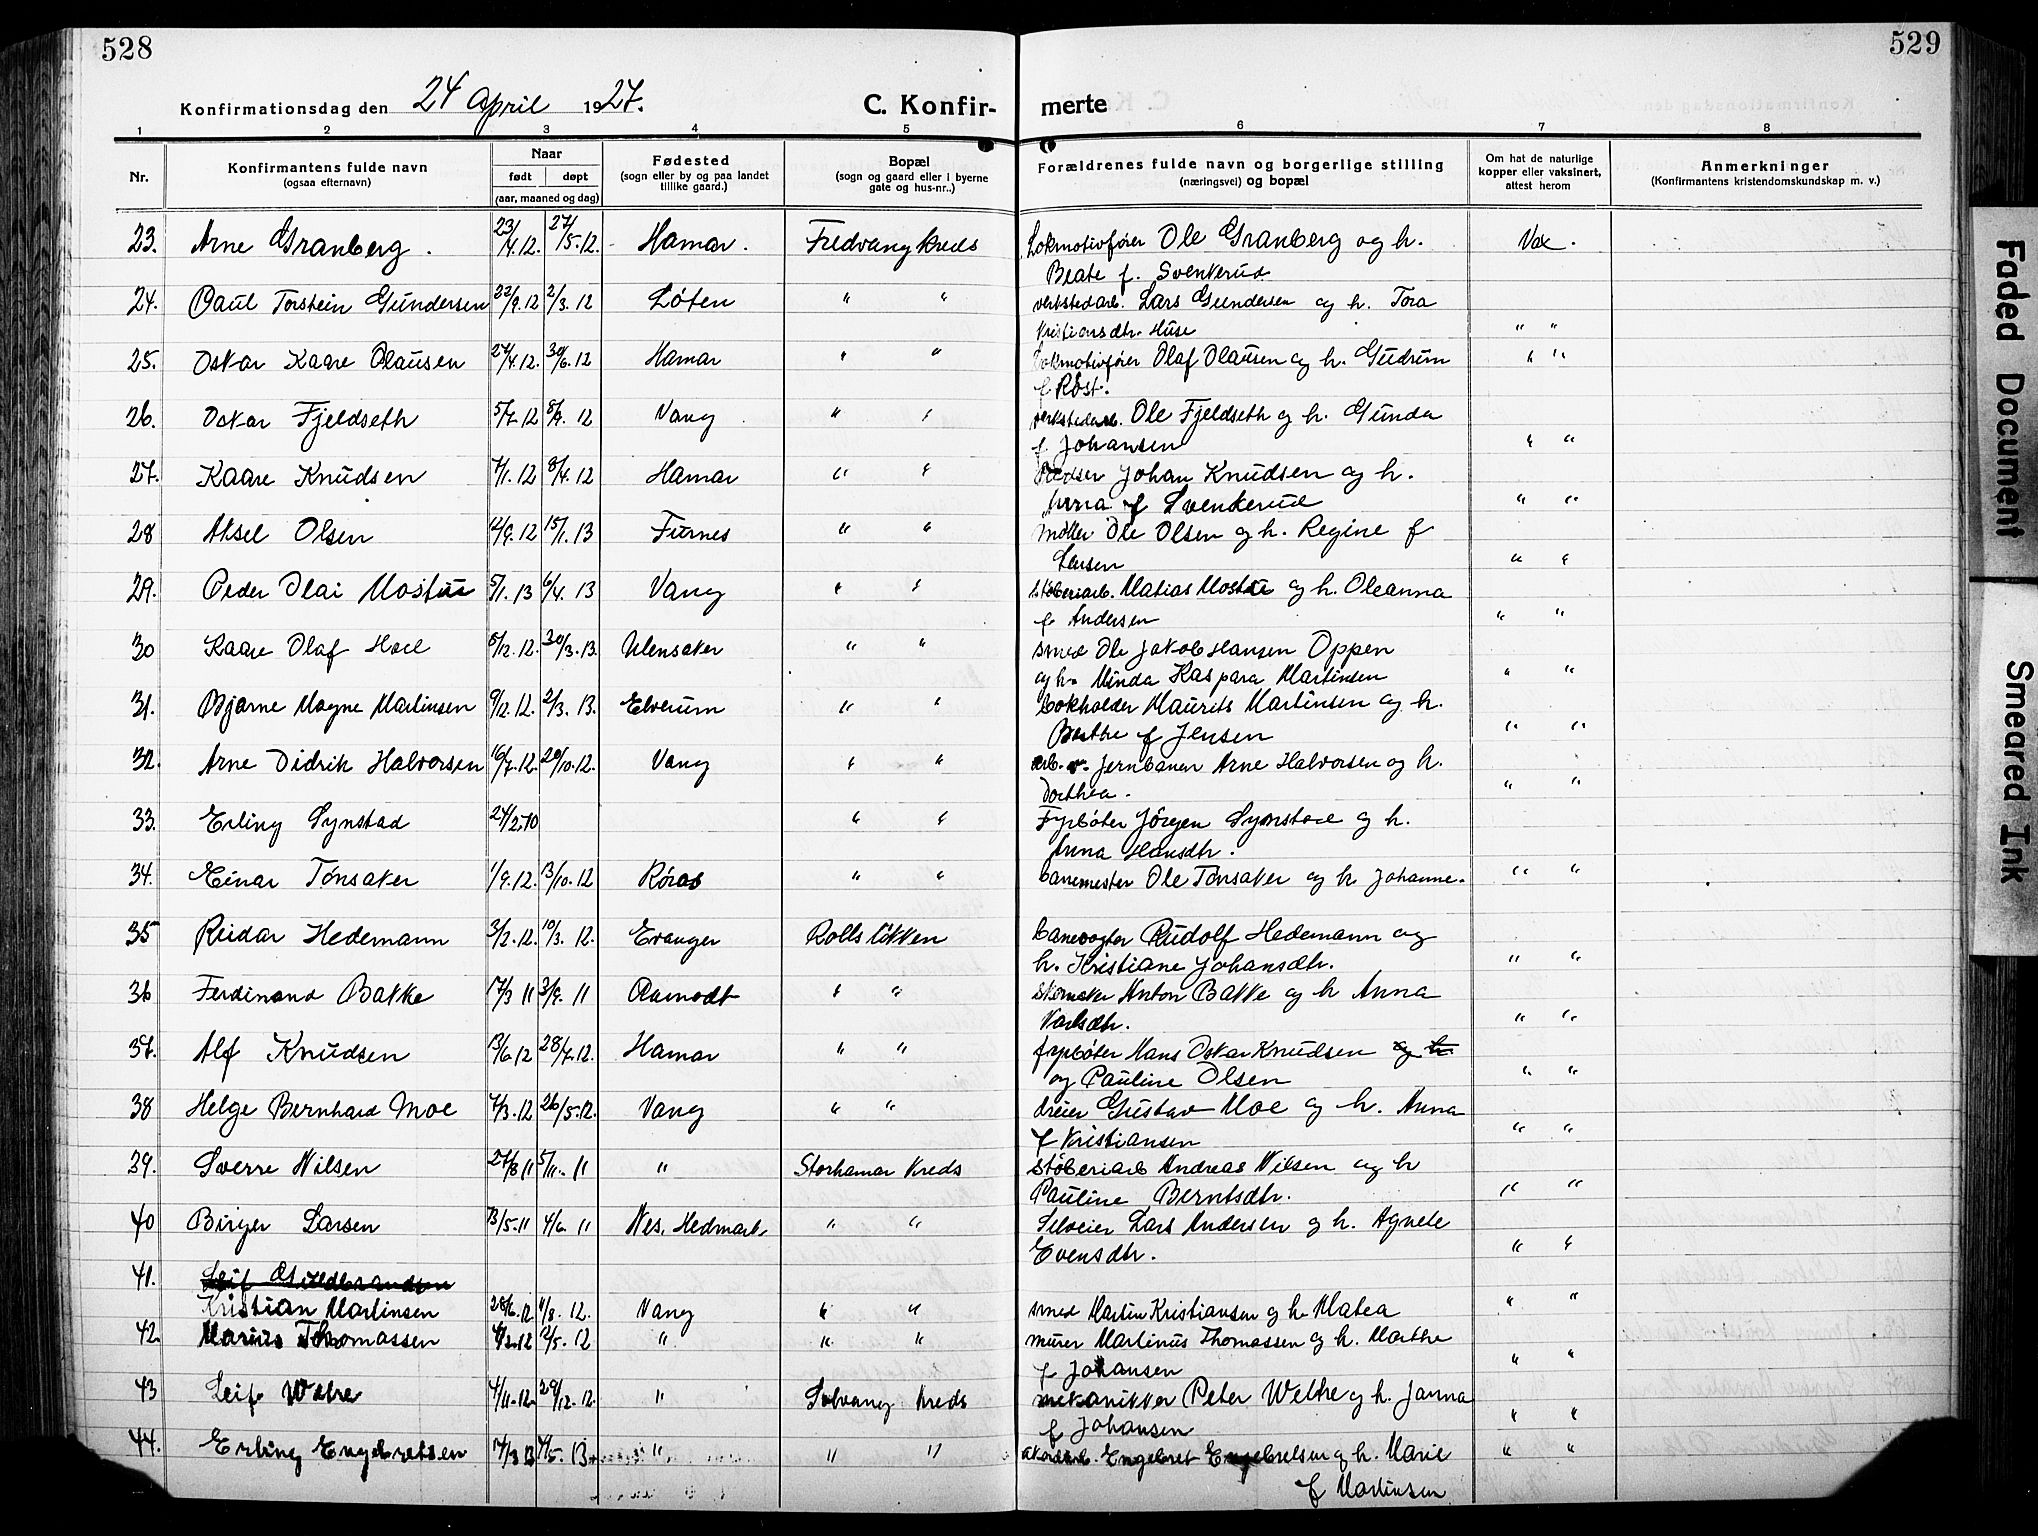 528
529
Konfirmationsdag den 24 April 1927.
C. Konfir- merte
1 2 3 4 5 6 7 8
Nr.
Konfirmantens fulde navn
(ogsaa efternavn)
Naar
født døpt
(aar, maaned og dag)
Fødested
(sogn eller by og paa landet
tillike gaard.)
Bopæl
(sogn og gaard eller i byerne
gate og hus-nr..)
Forældrenes fulde navn og borgerlige stilling
(næringsvei) og bopæl
Om hat de naturlige
kopper eller vaksinert,
attest herom
Anmerkninger
(Konfirmantens kristendomskundskap m. v.)
23. Arne Granberg. 23/4.12. 27/5.12. Hamar. Fredvang kreds Lokmotivfører Ole Granberg og h. Vax.
Beate f. Svenkerud
24. Paul Torstein Gundersen 22/9.12 2/3.12 Løten " " verkstedarb. Lars Gundersen og h. Tora
Kristiansdtr. Huse " "
25. Oskar Kaare Olausen 27/4.12. 30/6.12 Hamar " " Lokmotivfører Olaf Olausen og h. Gudrun " "
f Røst.
26. Oskar Fjeldseth 5/7 12 8/9. 12 Vang " " verkstedarb. Ole Fjeldseth og h. Gunda
f Johansen " "
27. Kaare Knudsen 7/1. 12 8/4. 12 Hamar " " Johan Knudsen og h.
Anna f Svenkerud " "
28 Aksel Olsen 12/9. 12 15/1. 13 Furnes " " møller Ole Olsen og h. Regine f
Larsen " "
29. Peder Olai Mostue 5/1. 13 6/4. 13 Vang " " støberiarb. Matias Mostue og h. Oleanna
f Andersen " "
30 Kaare Olaf Hoel 8/12. 12. 30/3. 13. Ulensaker " " smed Ole Jakob Hansen Oppen
og h. Minda Kaspara Martinsen " "
31. Bjarne Magne Martinsen 9/12. 12. 2/3. 13. Elverum " " bokholder Maurits Martinsen og h.
Berthe f Jensen " "
32. Arne Didrik Halvorsen 16/7.12. 20/10.12. Vang " " arb. v. Jernbanen Arne Halvorsen og h.
Dorthea. " "
33. Erling Synstad 24/2.10 " " Fyrbøter Jørgen Synstad og h.
Anna Hansdtr.
34. Einar Tønsaker 1/9.12. 13/10.12 Røros " " banemester Ole Tønsaker og h Johanne. " "
35 Reidar Hedemann 3/2.12. 10/3. 12. Evanger Rollsløkken banevogter Rudolf Hedemann og
h. Kristiane Johansdtr. " "
36 Ferdinand Bakke 17/3 11 3/9. 11 Aamodt " " skomaker Anton Bakke og h Anna
Karlsdtr. " "
37. Alf Knudsen 13/6 12 28/7.12. Hamar " " fyrbøter Hans Oskar Knudsen og h.
og Pauline Olsen " "
38 Helge Bernhard Moe 7/3.12 26/5.12. Vang " " dreier Gustav Moe og h. Anna
f Kristiansen " "
39. Sverre Nilsen 27/8 11 5/11. 11 " Storhamar Kreds støberiarb Andreas Nilsen og h
Pauline Berntsdtr. " "
40 Birger Larsen 13/5.11 4/6. 11 Nes, Hedmark. " " Selveier Lars Andersen og h. Agnete
Evensdtr. " "
41. Leif Guldbrandsen
Kristian Martinsen 28/6.12 4/8. 12. Vang " " smed Martin Kristiansen og h. Matea " "
42. Marius Thomassen 4/2.12 12/5. 12 " " " murer Martinus Thomassen og h. Marthe
f Johansen " "
43 Leif Welhe 4/11.12. 29/12.12. " Solvang Kreds mekanikker Peter Welhe og h. Janna
f Johansen " "
44. Erling Engebretsen 14/3 13 4/5. 13 " " " Engebret Engebretsen og h. Marie " "
f Martinsen
Faded Document
Smeared Ink